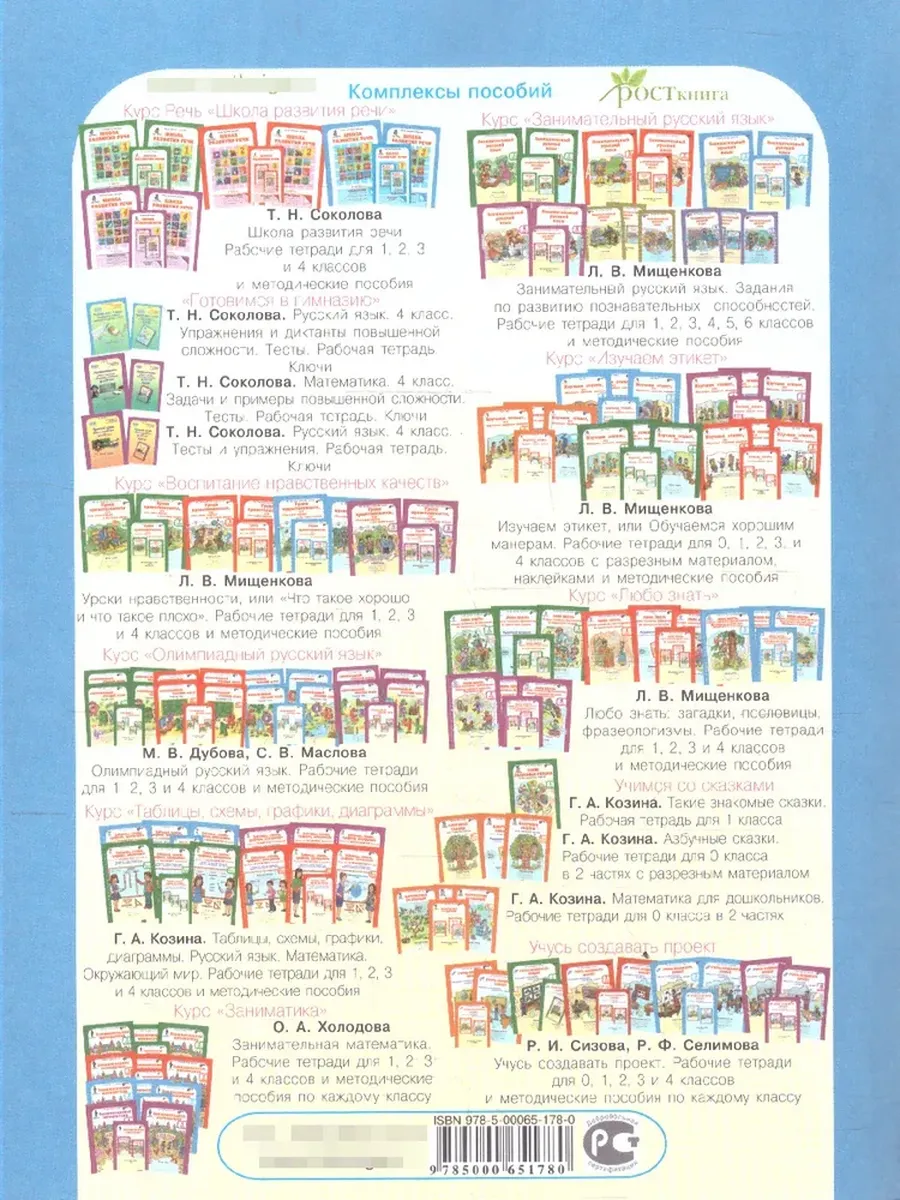 Комплексы пособий
РОСТкнига
Курс Речь «Школа развития речи»
Т. Н. Соколова
Школа развития речи
Рабочие тетради для 1, 2, 3
и 4 классов
и методические пособия
«Готовимся в гимназию»
Т. Н. Соколова. Русский язык. 4 класс.
Упражнения и диктанты повышенной
сложности. Тесты. Рабочая тетрадь.
Ключи
Т. Н. Соколова. Математика. 4 класс.
Задачи и примеры повышенной сложности.
Тесты. Рабочая тетрадь. Ключи
Т. Н. Соколова. Русский язык. 4 класс.
Тесты и упражнения. Рабочая тетрадь.
Ключи
Курс «Воспитание нравственных качеств»
Л. В. Мищенкова
Уроки нравственности, или «Что такое хорошо
и что такое плохо». Рабочие тетради для 1, 2, 3
и 4 классов и методические пособия
Курс «Олимпиадный русский язык»
М. В. Дубова, С. В. Маслова
Олимпиадный русский язык. Рабочие тетради
для 1 2, 3 и 4 классов и методические пособия
Курс «Таблицы, схемы, графики, диаграммы»
Г. А. Козина. Таблицы, схемы, графики,
диаграммы. Русский язык. Математика.
Окружающий мир. Рабочие тетради для 1, 2, 3
и 4 классов и методические пособия
Курс «Заниматика»
О. А. Холодова
Занимательная математика.
Рабочие тетради для 1, 2 3
и 4 классов и методические
пособия по каждому классу
Курс «Занимательный русский язык»
Л. В. Мищенкова
Занимательный русский язык. Задания
по развитию познавательных способностей.
Рабочие тетради для 1, 2, 3, 4, 5, 6 классов
и методические пособия
Курс «Изучаем этикет»
Л. В. Мищенкова
Изучаем этикет, или Обучаемся хорошим
манерам. Рабочие тетради для 0, 1, 2, 3, и
4 классов с разрезным материалом,
наклейками и методические пособия
Курс «Любо знать»
Л. В. Мищенкова
Любо знать: загадки, пословицы,
фразеологизмы. Рабочие тетради
для 1, 2, 3 и 4 классов
и методические пособия
Учимся со сказками
Г. А. Козина. Такие знакомые сказки.
Рабочая тетрадь для 1 класса
Г. А. Козина. Азбучные сказки.
Рабочие тетради для 0 класса
в 2 частях с разрезным материалом
Г. А. Козина. Математика для дошкольников.
Рабочие тетради для 0 класса в 2 частях
Учусь создавать проект
Р. И. Сизова, Р. Ф. Селимова
Учусь создавать проект. Рабочие тетради
для 0, 1, 2, 3 и 4 классов
и методические пособия по каждому классу
ISBN 978-5-00065-178-0
9 785000 651780
Добровольная
сертификация